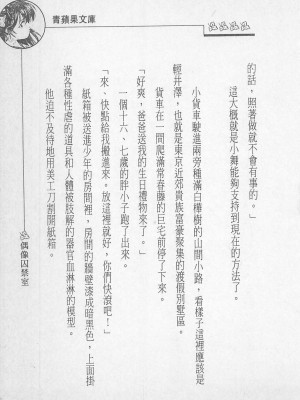 青蘋果文庫
的話，照著做就不會有事的。」
這大概就是小舞能夠支持到現在的方法了。
小貨車駛進兩旁種滿白樺樹的山間小路，看樣子這裡應該是
輕井澤，也就是東京近郊貴族富豪聚集的渡假別墅區。
貨車在一間爬滿常春藤的巨宅前停了下來。
「好爽，爸爸送我的生日禮物來了。」
一個十六、七歲的胖小子跑了出來。
「來、快點給我搬進來，放這裡就好，你們快滾吧！」
紙箱被送進少年的房間裡，房間的牆壁漆成暗黑色，上面掛
滿各種性虐的道具和人體被肢解的器官血淋淋的模型。
他迫不及待地用美工刀割開紙箱。
偶像囚禁室